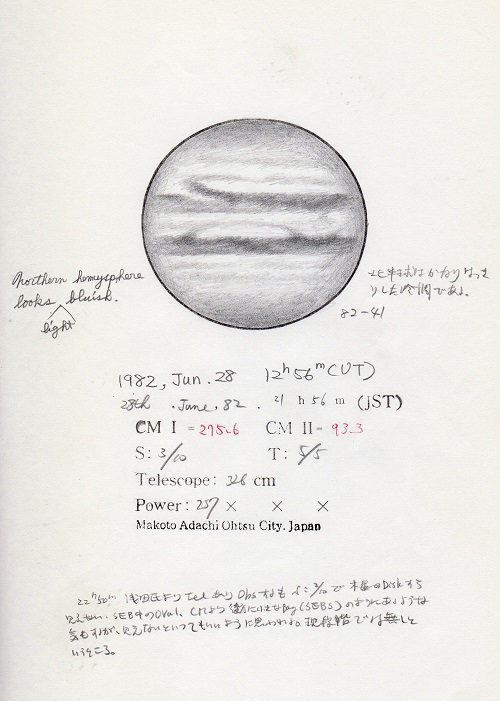 Northern hemysphere
looks bluish.
light
北半球はかなりはっき
りした冷調である。
82-41
1982, Jun. 28 12h 56m (UT)
28th . June, 82 . 21 h 56 m (JST)
CM I = 275.6 CM II = 93.3
S: 3/10 T: 5/5
Telescope: 326 cm
Power: 257 × × ×
Makoto Adachi Ohtsu City. Japan
22h50m 浅田氏より Tel あり Obs するも S: 2/10 で 木星の Disk すら
見えない. SEB中のOval, (SEBs) のように
気もするが、見えないといってもいいように思われる。現段階では無しと
いうところ。